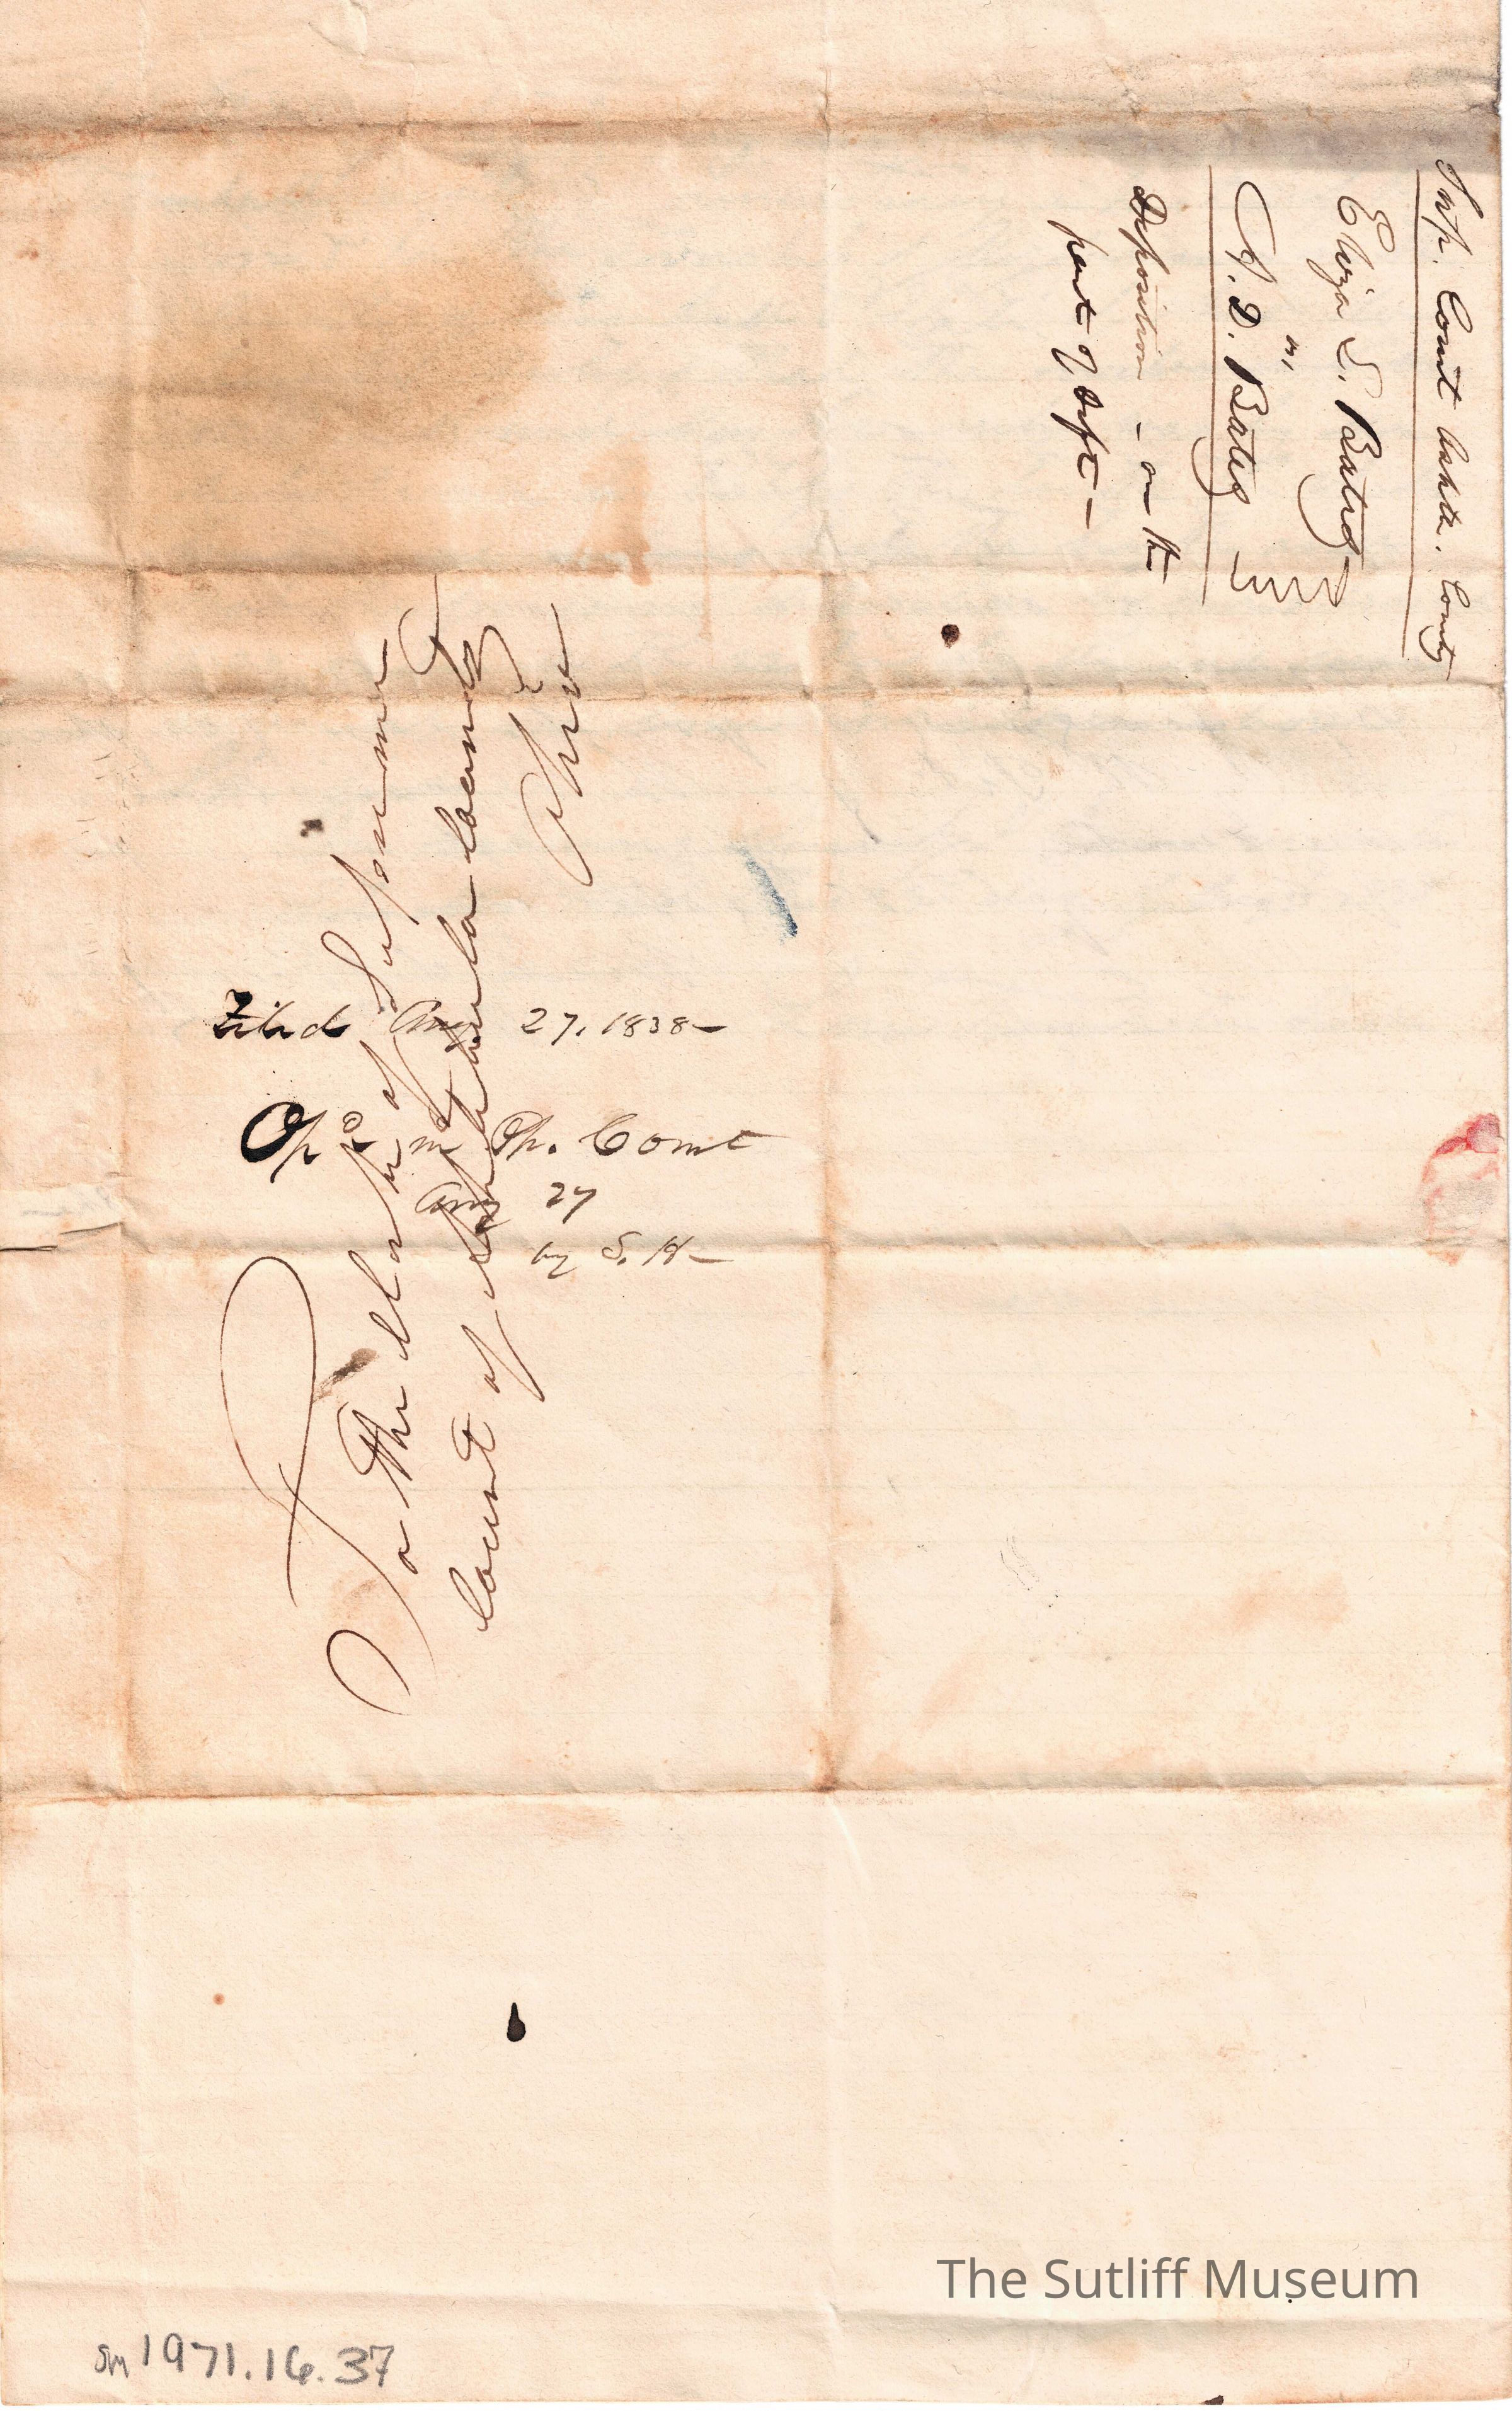 Sup. Court Ashta. County
Eliza S. Bates
vs.
A. D. Bates
Deposition - on the
part of Deft -
To the Clerk of Supreme
Court of Ashtabula County
Ohio
Filed Aug 27. 1838 -
Opd in Court
Aug 27
by S. H -
The Sutliff Museum
SM 1971.16.37